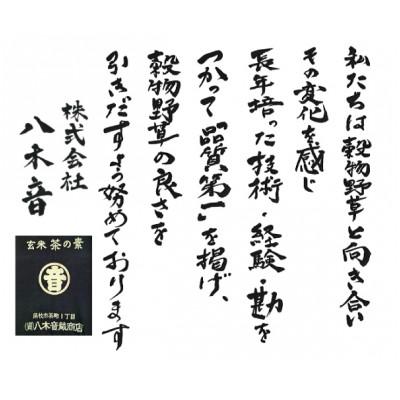 私たちは穀物野草と向き合い
その変化を感じ
長年培った技術・経験・勘を
つかって「品質第一」を掲げ、
穀物野草の良さを
引きだすよう努めております
株式会社
八木音
玄米 茶の素
音
浜松市茶町1丁目
(資)八木音蔵商店